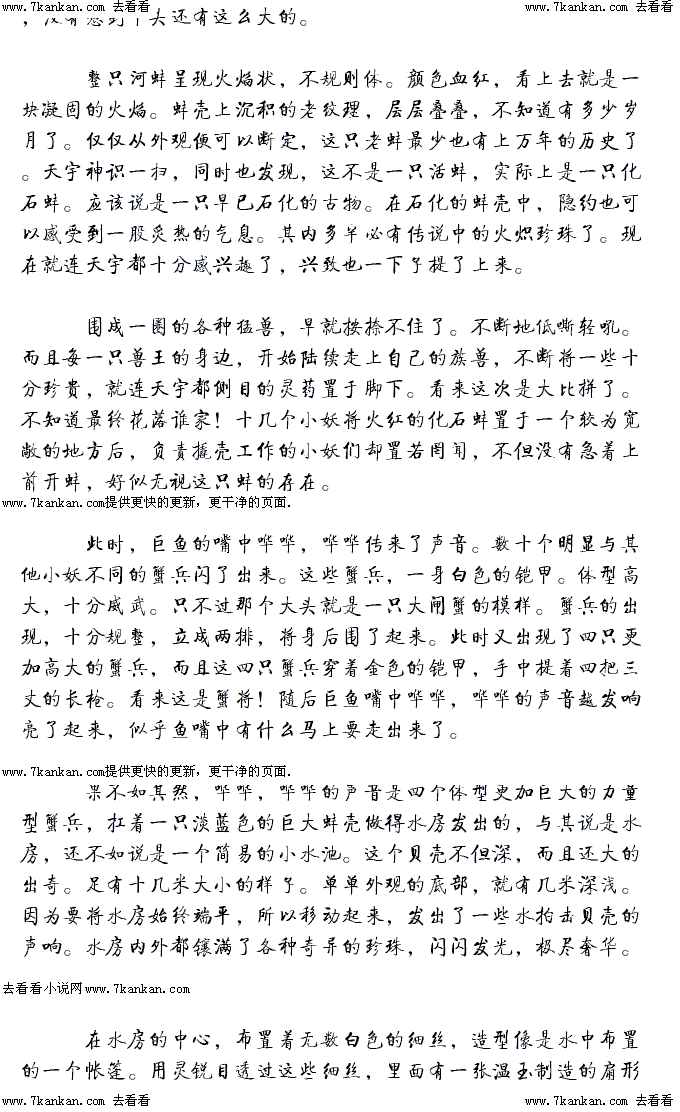 www.7kankan.com 去看看 www.7kankan.com 去看看
还有这么大的。
整只河蚌呈现火焰状，不规则体。颜色血红，看上去就是一
块凝固的火焰。蚌壳上沉积的老纹理，层层叠叠，不知道有多少岁
月了。仅仅从外观便可以断定，这只老蚌最少也有上万年的历史了
。天宇神识一扫，同时也发现，这不是一只活蚌，实际上是一只化
石蚌。应该说是一只早已石化的古物。在石化的蚌壳中，隐约也可
以感受到一股炙热的气息。其内多半必有传说中的火炽珍珠了。现
在就连天宇都十分感兴趣了，兴致也一下子提了上来。
围成一圈的各种猛兽，早就按捺不住了。不断地低嘶轻吼。
而且每一只兽王的身边，开始陆续走上自己的族兽，不断将一些十
分珍贵，就连天宇都侧目的灵药置于脚下。看来这次是大比拼了。
不知道最终花落谁家！十几个小妖将火红的化石蚌置于一个较为宽
敞的地方后，负责撬壳工作的小妖们却置若罔闻，不但没有急着上
前开蚌，好似无视这只蚌的存在。
www.7kankan.com提供更快的更新，更干净的页面.
此时，巨鱼的嘴中哗哗，哗哗传来了声音。数十个明显与其
他小妖不同的蟹兵闪了出来。这些蟹兵，一身白色的铠甲。体型高
大，十分威武。只不过那个大头就是一只大闸蟹的模样。蟹兵的出
现，十分规整，立成两排，将身后围了起来。此时又出现了四只更
加高大的蟹兵，而且这四只蟹兵穿着金色的铠甲，手中提着四把三
丈的长枪。看来这是蟹将！随后巨鱼嘴中哗哗，哗哗的声音越发响
亮了起来，似乎鱼嘴中有什么马上要走出来了。
www.7kankan.com提供更快的更新，更干净的页面.
果不如其然，哗哗，哗哗的声音是四个体型更加巨大的力量
型蟹兵，扛着一只淡蓝色的巨大蚌壳做得水房发出的，与其说是水
房，还不如说是一个简易的小水池。这个贝壳不但深，而且还大的
出奇。足有十几米大小的样子。单单外观的底部，就有几米深浅。
因为要将水房始终端平，所以移动起来，发出了一些水拍击贝壳的
声响。水房内外都镶满了各种奇异的珍珠，闪闪发光，极尽奢华。
去看看小说网www.7kankan.com
在水房的中心，布置着无数白色的细丝，造型像是水中布置
的一个帐篷。用灵锐目透过这些细丝，里面有一张温玉制造的扇形
www.7kankan.com 去看看 www.7kankan.com 去看看